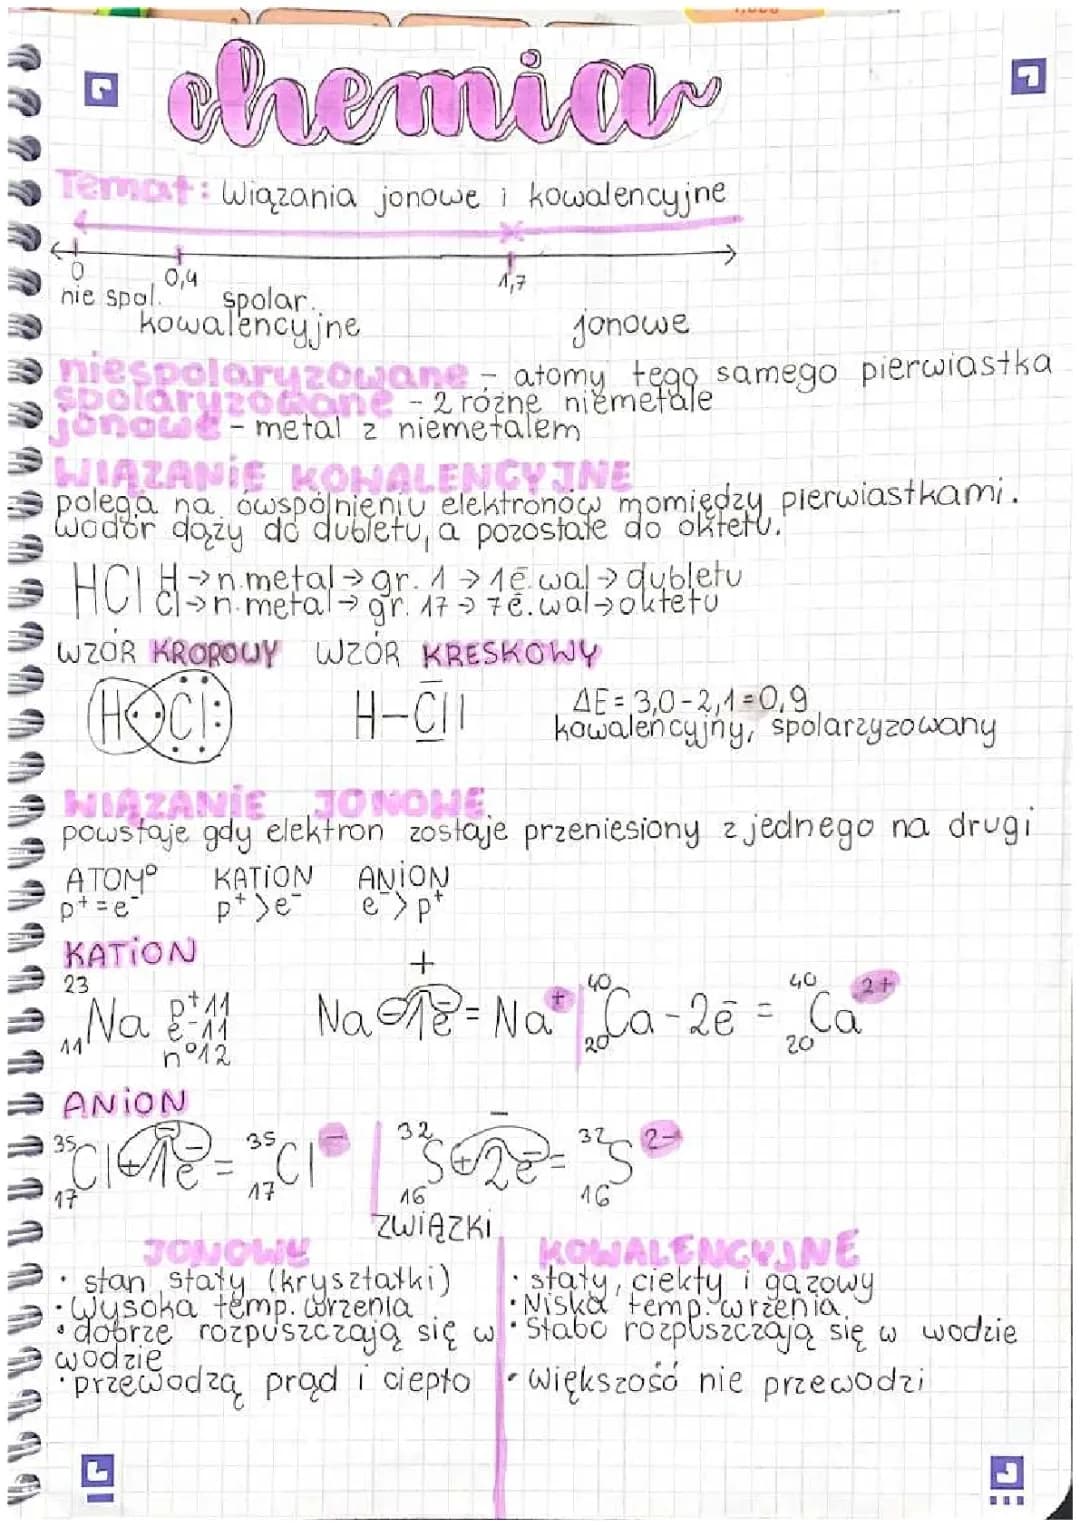 chemia
Temat: Wiązania jonowe i kowalencyjne
0 0,4 1,7
nie spol. spolar.
kowalencyjne jonowe
niespolaryzowane - atomy tego samego pierwiastka
spolaryzowane - 2 różne niemetale
jonowe - metal z niemetalem
WIĄZANiE KOWALENCYJNE
polega na ówspólnieniu elektronów momiędzy pierwiastkami.
wodór dąży do dubletu, a pozostałe do oktetu.
HCl H→n.metal→gr. 1→1ē.wal→dubletu
Cl→n.metal→gr. 17→7ē.wal→oktetu
WZÓR KROPOWY WZÓR KRESKOWY
H Cl H-Cl| ΔE=3,0-2,1=0,9
kowalencyjny, spolarzyzowany
WIĄZANiE JONOWE
powstaje gdy elektron zostaje przeniesiony z jednego na drugi
ATOM⁰ KATiON ANiON
p⁺=e⁻ p⁺>e⁻ e⁻>p⁺
KATiON
²³₁₁Na p⁺11 e⁻11 n⁰12 Na-1ē=Na⁺ ⁴⁰₂₀Ca-2ē=⁴⁰₂₀Ca²⁺
ANiON
³⁵₁₇Cl+1ē=³⁵₁₇Cl⁻ ³²₁₆S+2ē=³²₁₆S²⁻
ZWiĄZKi
JONOWE KOWALENCYJNE
• stan stały (kryształki) • stały, ciekły i gazowy
• Wysoka temp. wrzenia • Niska temp. wrzenia
• dobrze rozpuszczają się w • Słabo rozpuszczają się w wodzie
wodzie
• przewodzą prąd i ciepło • większość nie przewodzi